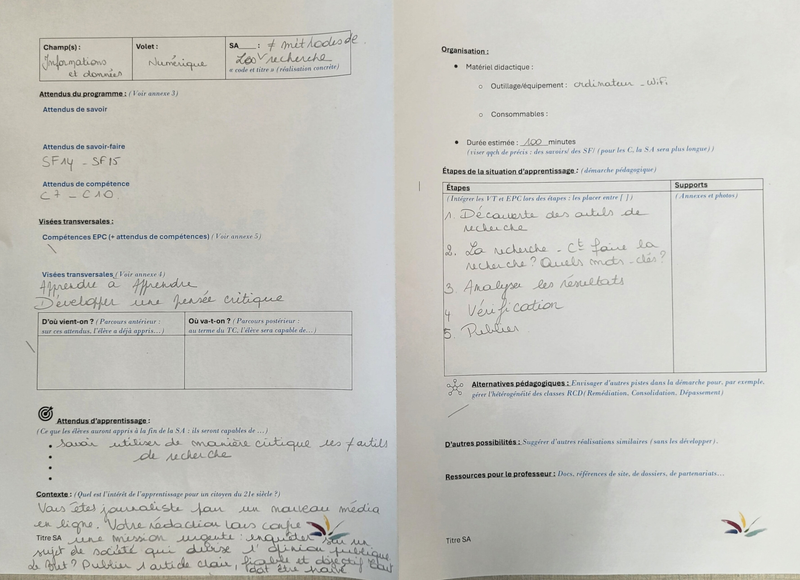 Champ(s) :
Informations
et données
Volet :
Numérique
SA___ : ≠ méthodes de
Les recherche
« code et titre » (réalisation concrète)
Attendus du programme : (Voir annexe 3)
Attendus de savoir
Attendus de savoir-faire
SF14 - SF15
Attendus de compétence
C7 - C10
Visées transversales :
Compétences EPC (+ attendus de compétences) (Voir annexe 5)
Visées transversales (Voir annexe 4)
Apprendre à Apprendre
Développer une pensée critique
D'où vient-on ? (Parcours antérieur :
sur ces attendus, l'élève a déjà appris…)
Où va-t-on ? (Parcours postérieur :
au terme du TC, l'élève sera capable de…)
Attendus d'apprentissage :
(Ce que les élèves auront appris à la fin de la SA : ils seront capables de …)
• Savoir utiliser de manière critique les ≠ outils
de recherche
Contexte : (Quel est l'intérêt de l'apprentissage pour un citoyen du 21e siècle ?)
Vous êtes journaliste pour un nouveau média
en ligne. Votre rédaction vous confie
Titre SA
une mission urgente : enquêter sur un
sujet de société qui divise l'opinion publique
Le but ? Publier 1 article clair, fiable et objectif
Organisation :
• Matériel didactique :
○ Outillage/équipement : ordinateur - Wifi
○ Consommables :
• Durée estimée : 100 minutes
(viser qqch de précis : des savoirs/ des SF/ (pour les C, la SA sera plus longue))
Étapes de la situation d'apprentissage : (démarche pédagogique)
Étapes
(Intégrer les VT et EPC lors des étapes : les placer entre [ ])
Supports
(Annexes et photos)
1. Découverte des outils de
recherche
2. La recherche - Ct faire la
recherche ? Quels mots-clés ?
3. Analyser les résultats
4. Vérification
5. Publier
Alternatives pédagogiques : Envisager d'autres pistes dans la démarche pour, par exemple,
gérer l'hétérogénéité des classes RCD( Remédiation, Consolidation, Dépassement)
D'autres possibilités : Suggérer d'autres réalisations similaires (sans les développer).
Ressources pour le professeur : Docs, références de site, de dossiers, de partenariats…
Titre SA